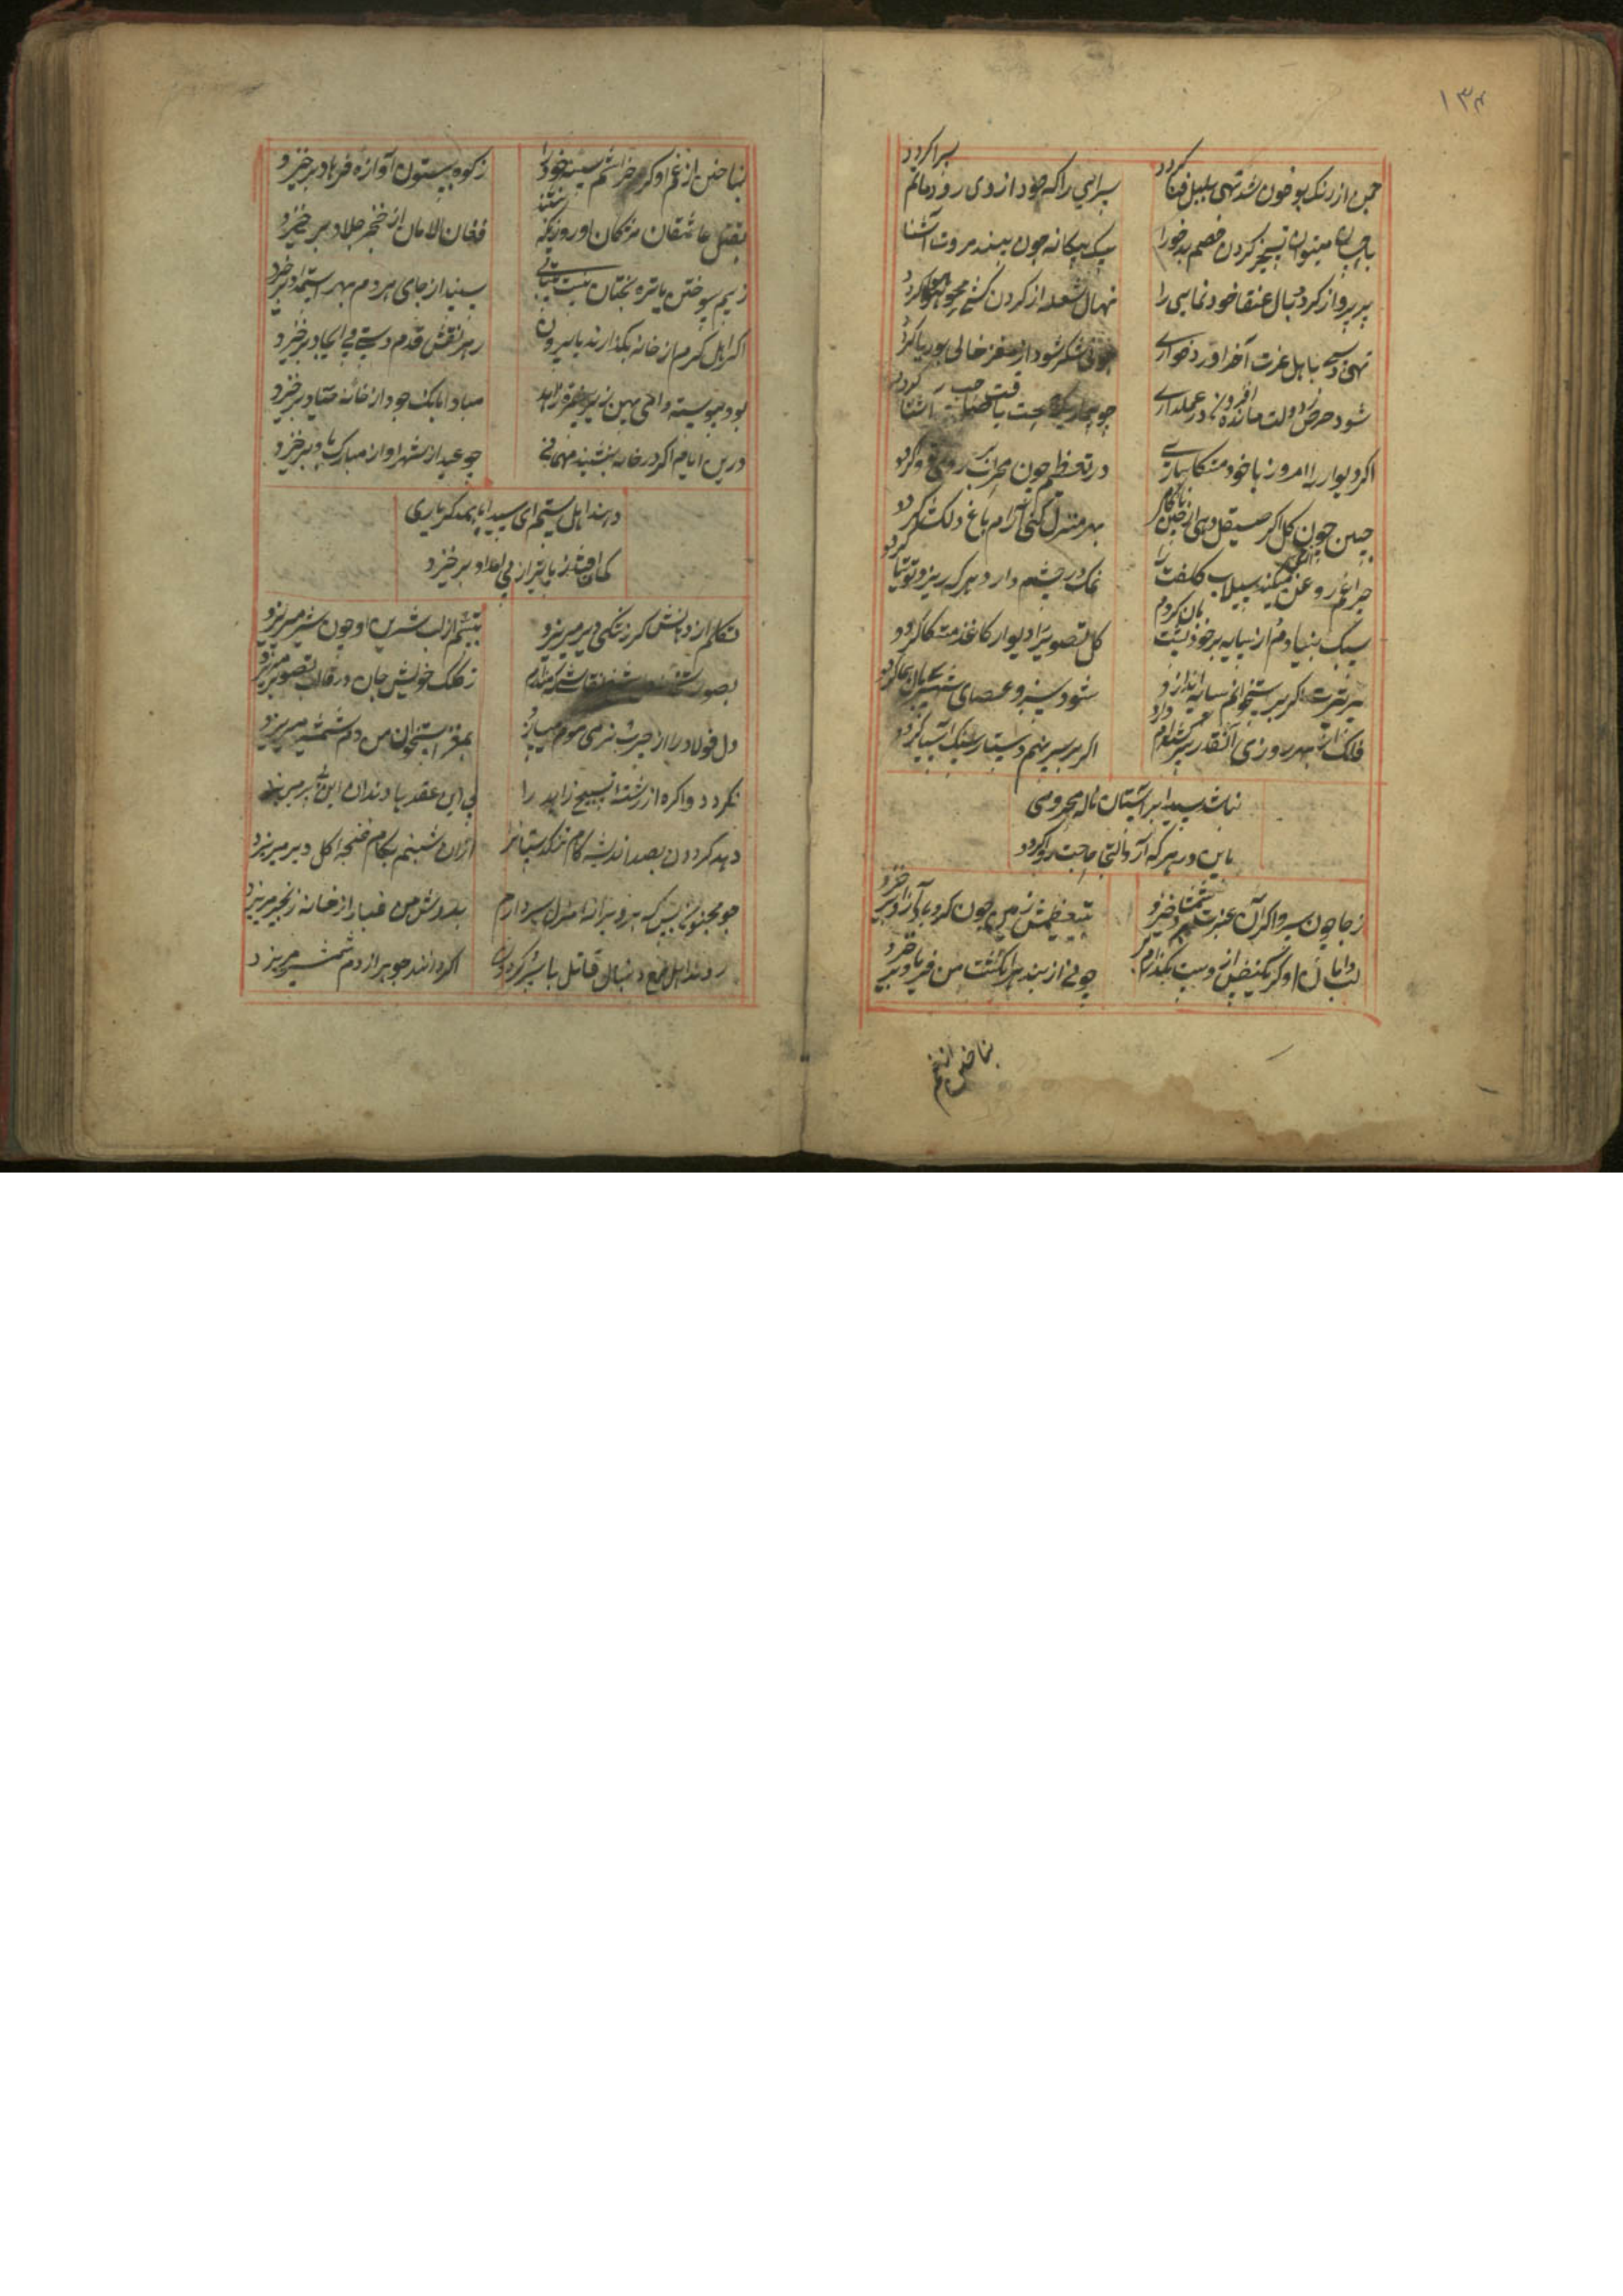 ۱۳۴
چمن از رنگ بو خون شد تهی بلبل فنا گردد
سراسی را که جود از وی رود ماتم سرا گردد
باحسان میتوان تسخیر کردن خصم بدخو را
سگ بیگانه چون بیند مروت آشنا گردد
پر پرواز کردد بال عنقا خود نمایی را
نهال شعله از گردن کشی محو هوا گردد
تهی دستی باهل عزت آخر آورد خواری
چو نی شکر شود از مغز خالی بوریا گردد
شود حرص ز دولت مانده افزون در عملداری
چو بیمار یکه صحبت یافت صاحب اشتها گردد
اکر دیوار را امروز با خود متکا سازی
در تعظیم چون محراب
جبین چون کل اکر صیقل دهی از چین
بهر منزل کنی آرام باغ دلکشا گردد
چراغم روغن میکند سیلاب کلفت را
نمک در چشم دارد هر که ریزد توتیا گردد
سبک بنیادم از سایه بر خود پشت بان کردم
کل تصویر را دیوار کاغذ متکا گردد
سر تیرت اکر بر استخوانم سایه اندازد
شود سبز و عصای
فلک از بهر روزی آنقدر سرکشته ام دارد
اکر بر سر نهم دستار سنک آسیا گردد
نباشد سیدا بر آستان ناله محرومی
باین در هر که آرد التجا حاجت روا گردد
ز جا چون سرو اکر آن عنبرین شمشاد خیزد
بتعظیمش زمین چون کرد باد از جا برخیزد
لب دامان او کر یکنفس از دست بگذارم
چو نی از بند هر انکشت من فریاد برخیزد
بناخن از غم
بناخن از غم او کر خراشم سینه خود را
ز کوه بیستون آوازه فرهاد برخیزد
بقتل عاشقان مژکان او روزیکه بنشیند
فغان الامان از خنجر جلاد برخیزد
ز بیم سوختن با تیره بختان نیست بیتابی
سپند از جای هر دم بهر استمداد برخیزد
اکر اهل کرم از خانه بگذارند پا بیرون
ز هر نقش قدم دستی پی ایجاد برخیزد
بود پیوسته دامی پهن زیر خرقه زاهد
مبادا بانک جود از خانه صیاد برخیزد
درین ایام اکر در خانه بنشیند مهمانی
چو عید از شهر آواز مبارک باد برخیزد
دهند اهل ستم ای سیدا با یکدکر یاری
کمان افتد ز پا تیر از پی امداد برخیزد
تکلم از دهانش کر ز تنکی دیر میریزد
تبسم از لب شیرین او چون شیر میریزد
ز کلک خویش جان در قالب تصویر میریزد
دل فولاد را از چرب نرمی موم میسازد
بمغز استخوان من دم شمشیر میریزد
نکردد وا کره از رشته تسبیح زاهد را
پی این عقد ها دندان این
دهد گردون بصد اندیشه کام تنکدستانرا
ازان شبنم بکام غنچه کل دیر میریزد
چو مجنونی بس که هر ویرانه منزل سردارم
بدوش من غبار از خانه زنجیر میریزد
روند اهل طمع دنبال قاتل با سر کردون
اکر دانند جوهر از دم شمشیر میریزد